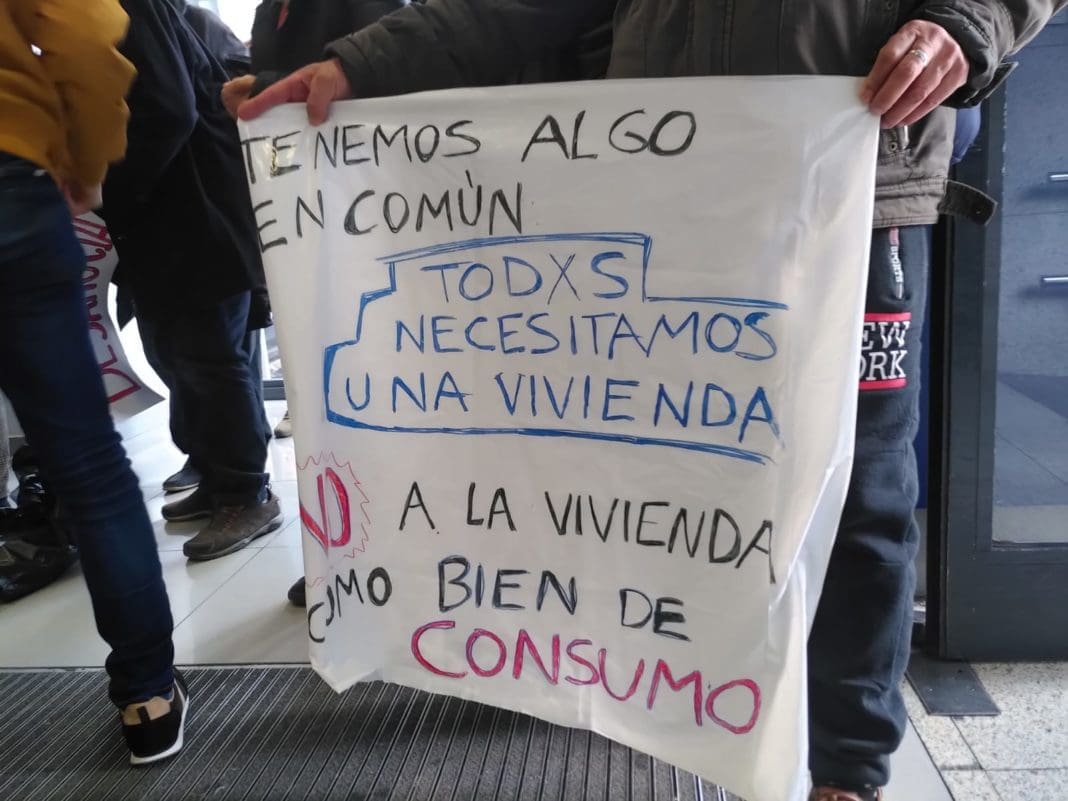 TENEMOS ALGO
EN COMÙN
TODXS
NECESITAMOS
UNA VIVIENDA
NO A LA VIVIENDA
COMO BIEN DE
CONSUMO
SPORTS